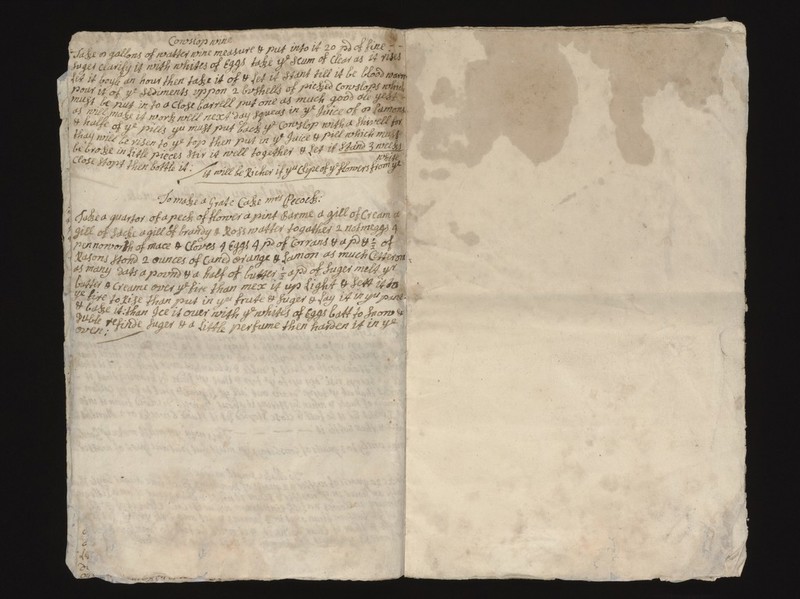 Cowslop wine
Take gallons of watter wine measure & put into it 20 pd of fine
suger clarify it with whites of Eggs take ye scum of Clear as it rises
let it boyle an hour then take it of & let it stant till it be blood warm
pour it of ye sediments uppon 2 bushells of picked Cowslops which
must be put in to a Close barrell put one as much good ale yest
as will make it work well next day squeas in ye Juice of Lamons
& halfe of ye pills yu must put back ye Cowslop with a for
thay will be risen to ye top then put in ye Juice & pill which must
be broke in little pieces stir it well together & let it stand 3 weekes
Close stopt then bottle it. it will be Richer if yu Clipe of ye flowers from ye
white
To make a Grate Cake mrs Pecock:
Take a quartor of a peck of flower a pint Barme a gill of Cream a
gill of sacke a gill of brandy & Ross watter together 2 notmeags
pennoworth of mace & Cloves 4 Eggs 4 pd of Corrans & a pd & ½ of
Rasons stond 2 ounces of Cand orange & Lamon as much Citteron
as many dats a pound & a half of butter ½ a pd of suger melt yr
butter & Creame over ye fire than mex it up Light & sett it to
ye fire to rise than put in yu frute & suger & Lay it in yu pane
& bake it than Ice it over with ye whites of Eggs batt to snow &
duble refinde suger & a Little perfume then harden it in ye
oven: